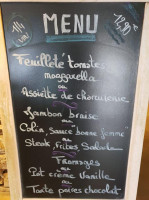 MENU
Feuilleté Forestier
mozzarella
ou
Assiette de charcuterie
Jambon braisé
ou
Colin sauce bonne femme
ou
Steak, Frites, Salade
Fromages
ou
Pot crème Vanille
ou
Tarte poires chocolat